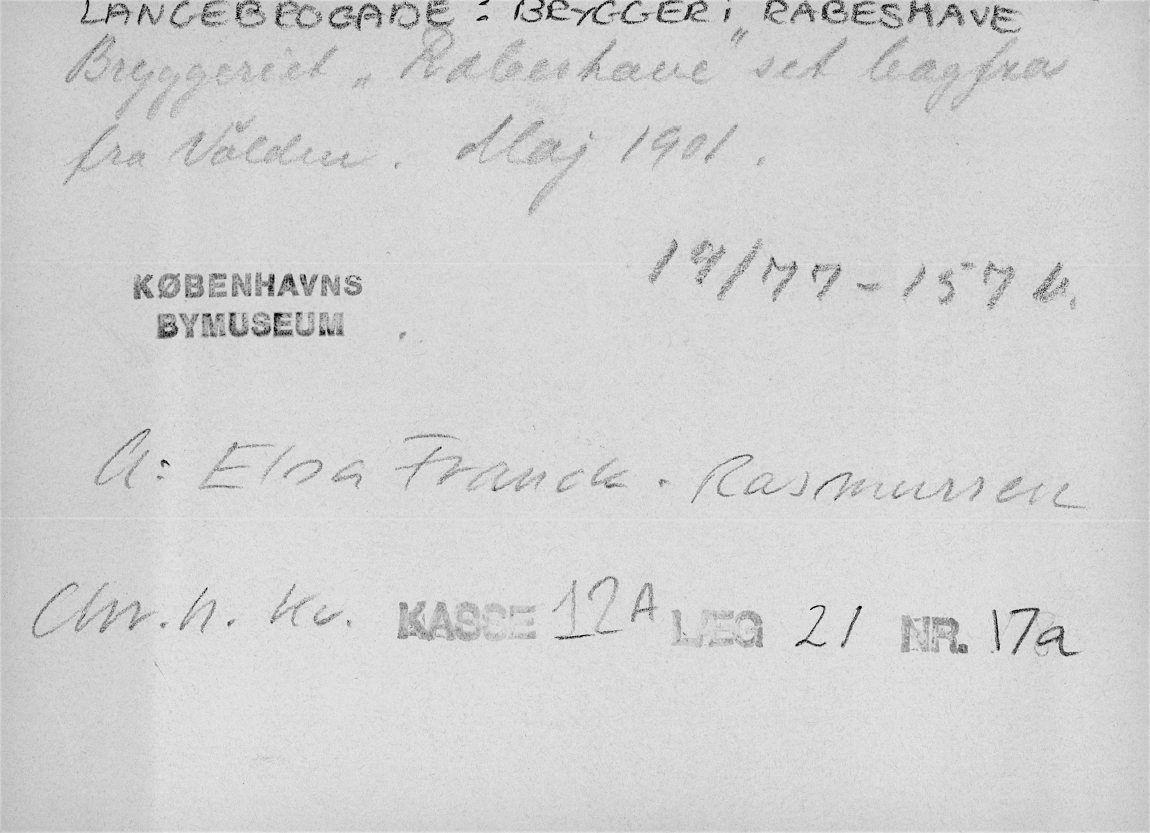 LANGEBROGADE : BRYGGERI RABESHAVE
Bryggeriet „Rabeshave" set bagfra
fra Volden. Maj 1901.
KØBENHAVNS
BYMUSEUM
19/77-157 b.
A: Elsa Franck-Rasmussen
Chr.h. Kv. KASSE 12A LÆG 21 NR. 17a